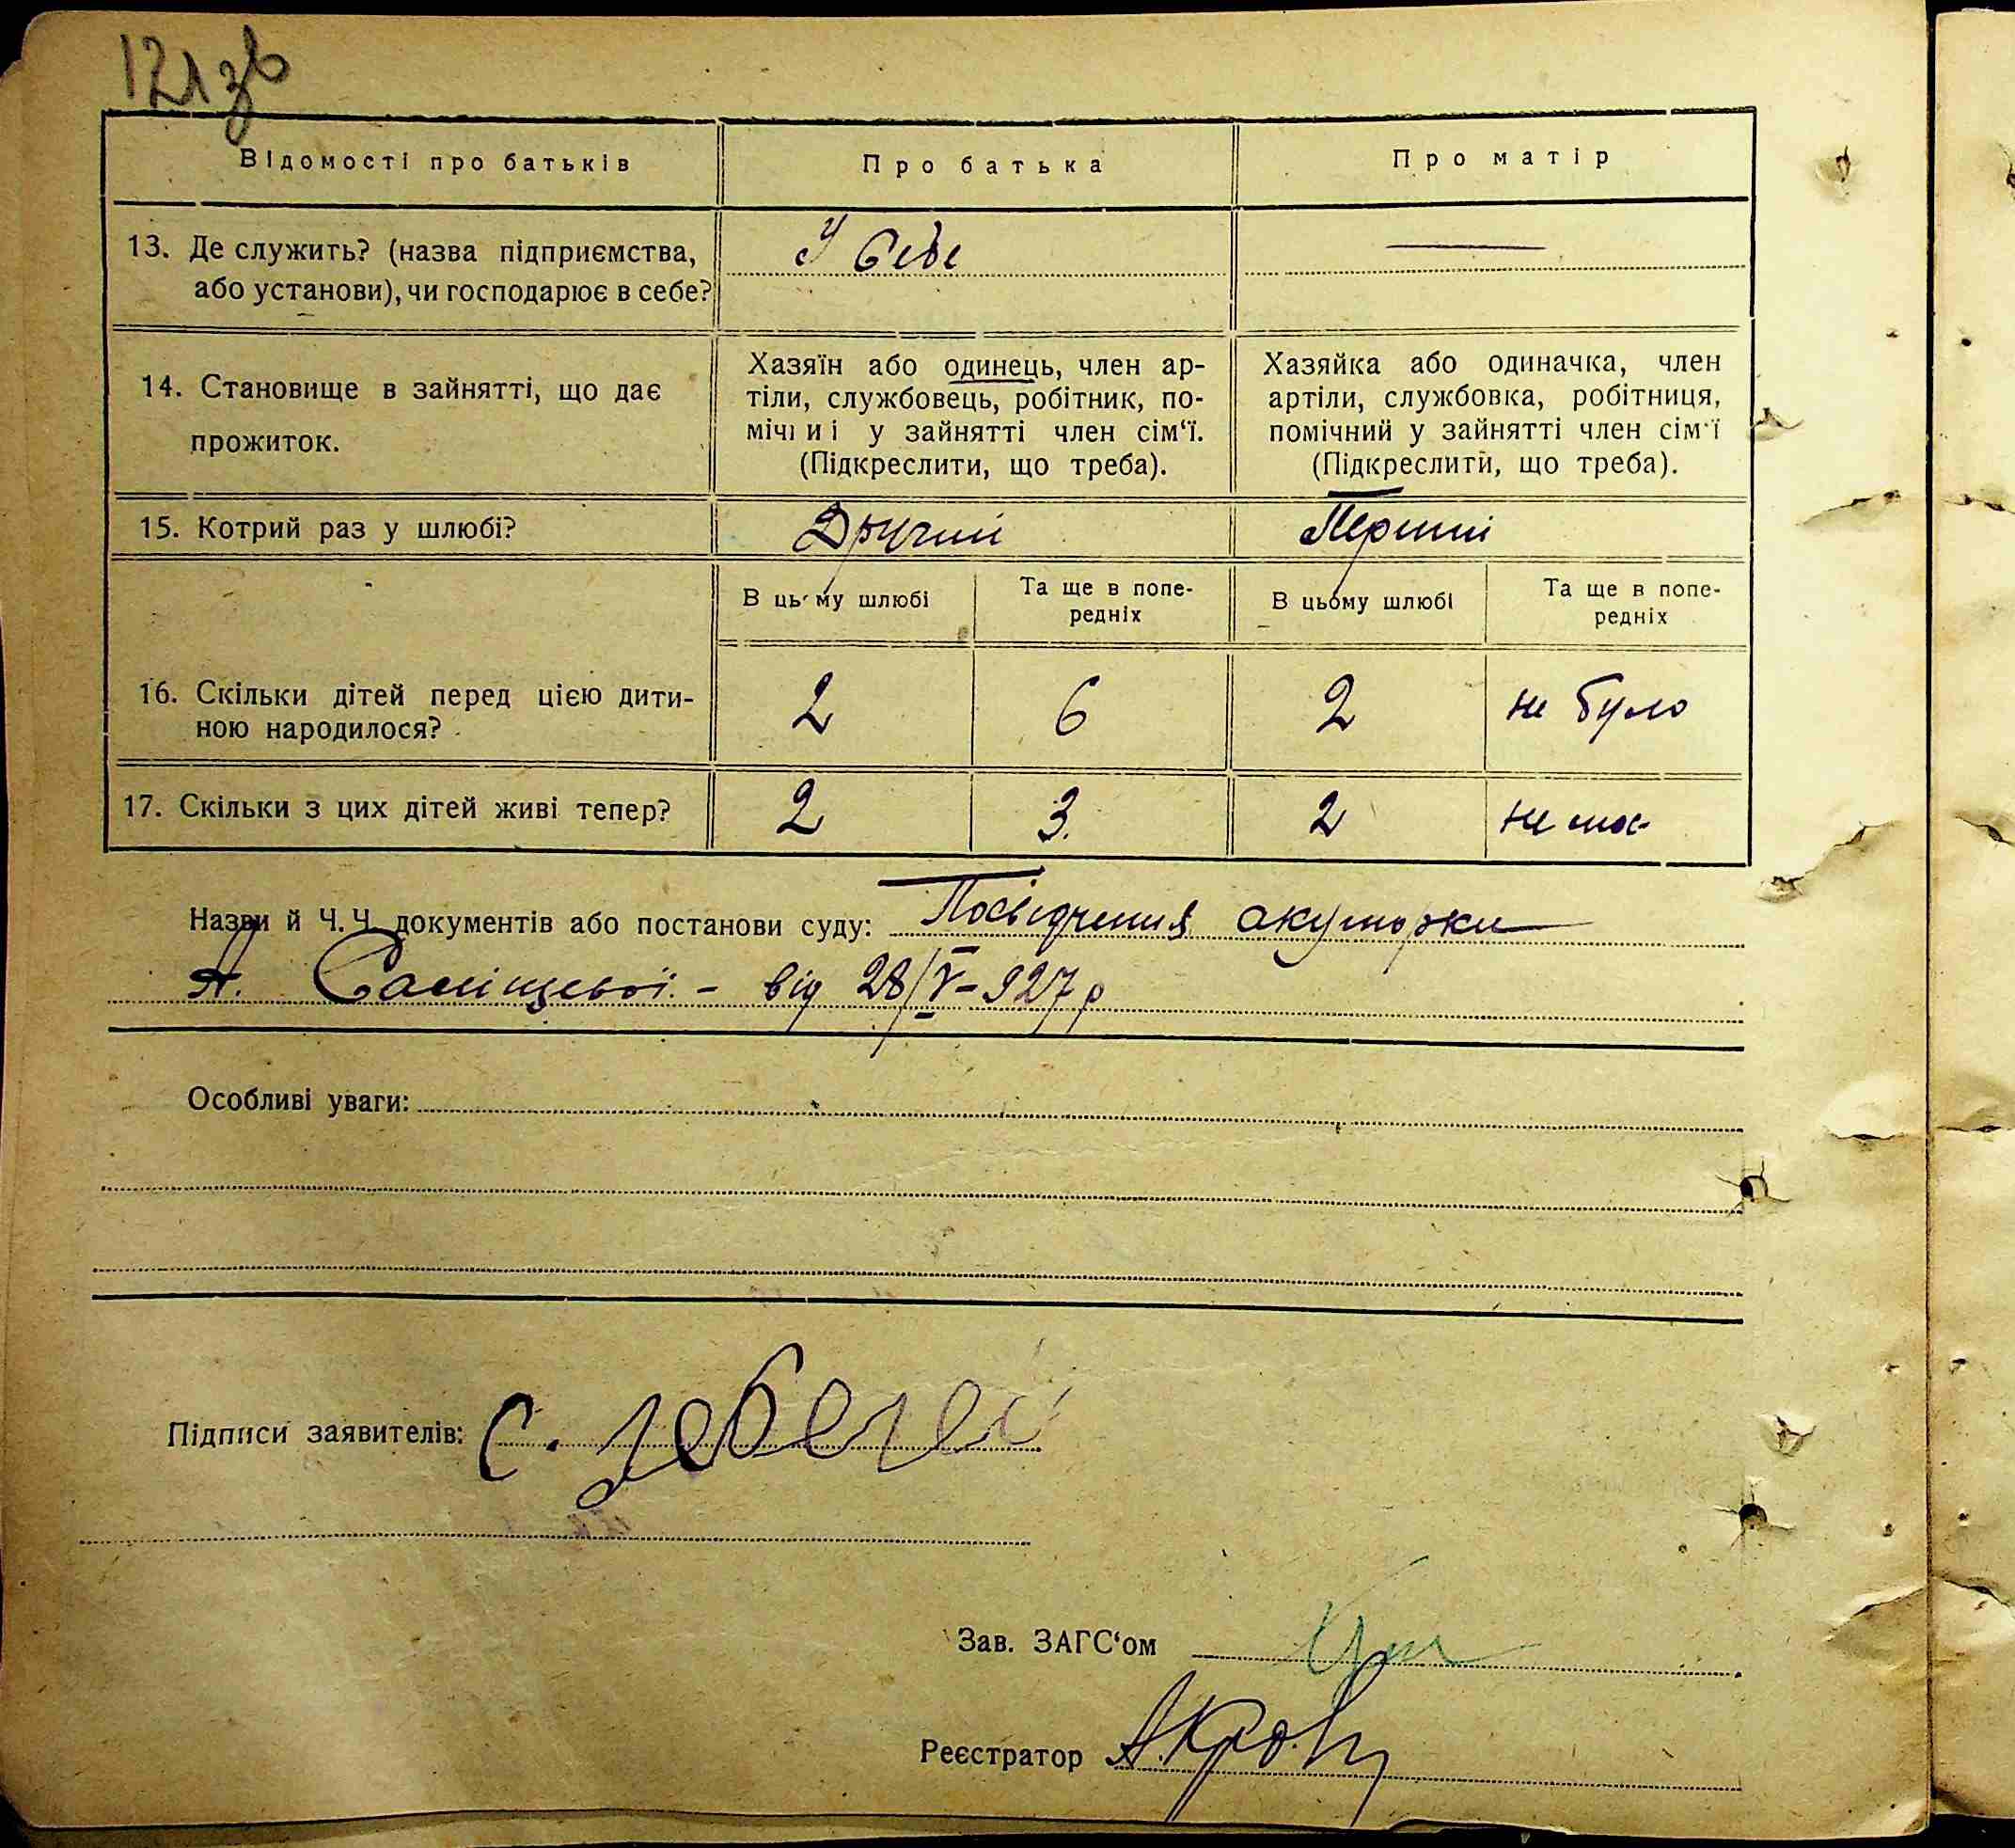 121 зв
Відомості про батьків
Про батька
Про матір
13. Де служить? (назва підприємства,
або установи), чи господарює в себе?
У себе
14. Становище в зайнятті, що дає
прожиток.
Хазяїн або одинець, член ар-
тіли, службовець, робітник, по-
мічниі у зайнятті член сім‘ї.
(Підкреслити, що треба).
Хазяйка або одиначка, член
артіли, службовка, робітниця,
помічний у зайнятті член сім‘ї
(Підкреслити, що треба).
15. Котрий раз у шлюбі?
Другий
Перший
В цьому шлюбі
Та ще в попе-
редніх
В цьому шлюбі
Та ще в попе-
редніх
16. Скільки дітей перед цією дити-
ною народилося?
2
6
2
не було
17. Скільки з цих дітей живі тепер?
2
3.
2
не має
Назви й Ч.Ч. документів або постанови суду: Посвідчення акушорки
від 28/V-927 р
Особливі уваги:
Підписи заявителів: С.
Зав. ЗАГС‘ом
Реєстратор